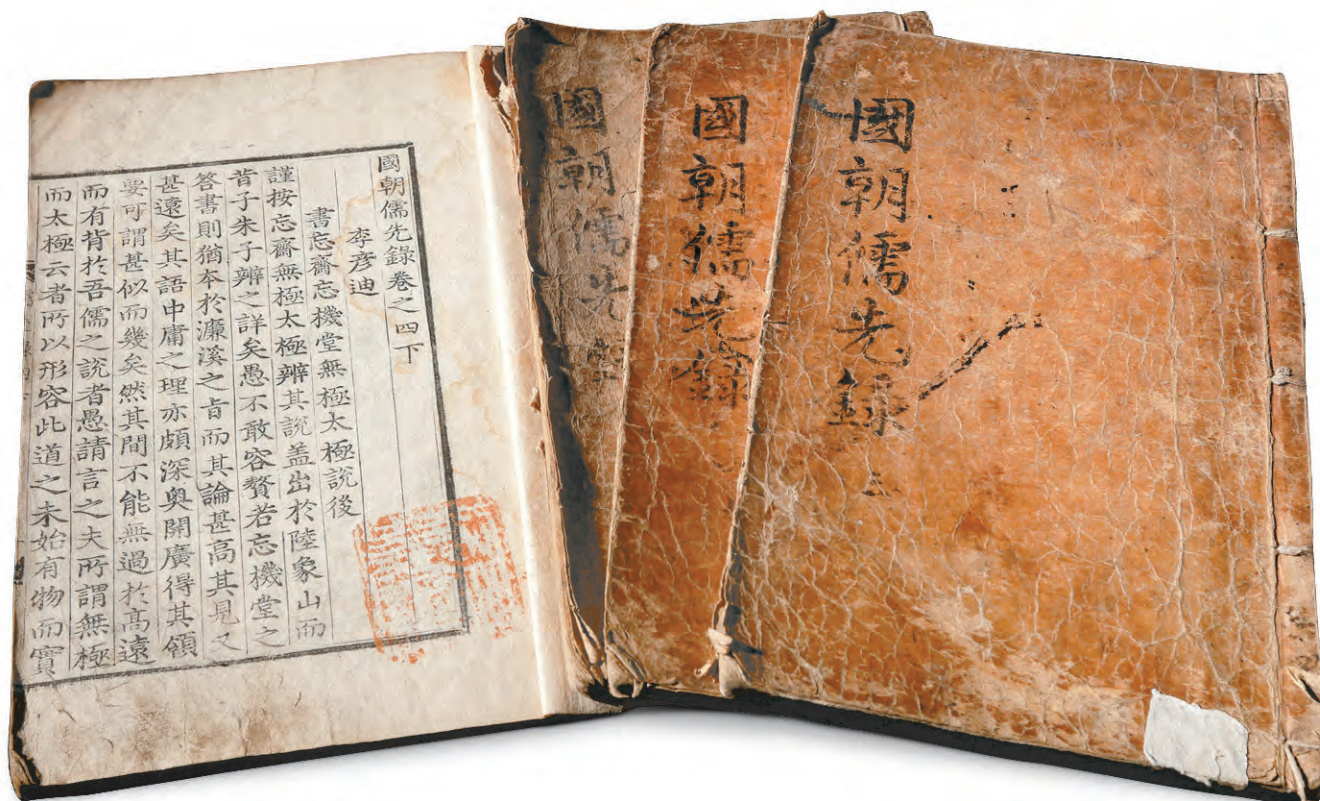 國朝儒先錄卷之四下
李彦迪
書忘齋忘機堂無極太極說後
謹按忘齋無極太極辨其說盖出於陸象山而
昔子朱子辨之詳矣愚不敢容贅若忘機堂之
答書則猶本於濂溪之旨而其論甚高其見又
甚遠矣其語中庸之理亦頗深奥開廣得其領
要可謂甚似而幾矣然其間不能無過於高遠
而有背於吾儒之說者愚請言之夫所謂無極
而太極云者所以形容此道之未始有物而實
國朝儒先
國朝儒先錄
國朝儒先録